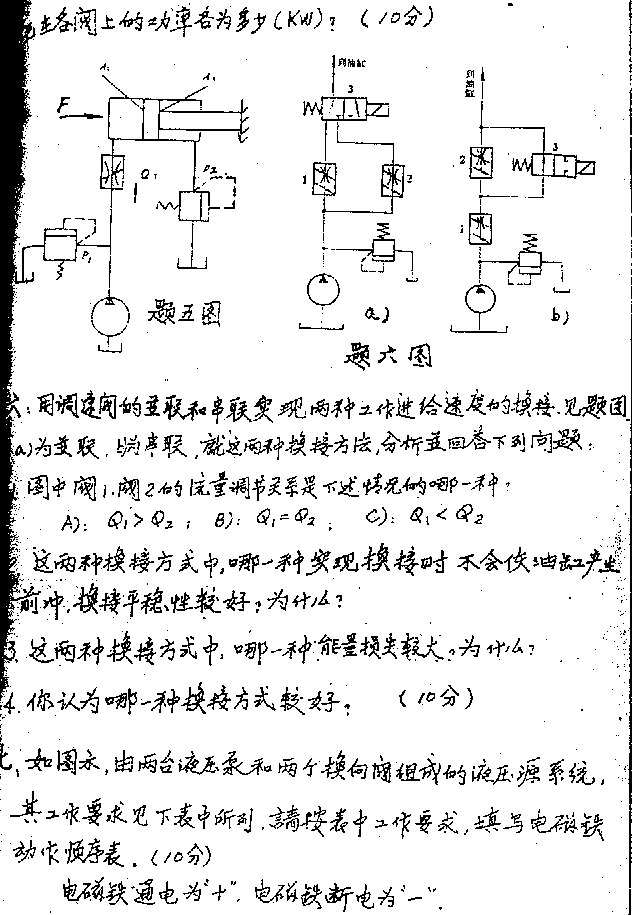 生各阀上的功率各为多少(KW)? (10分)
到油缸
3
A₁
A₂
F
Q₁
P₂
P₁
题五图
1
2
a)
到油缸
2
3
1
b)
题六图
六:用调速阀的並联和串联实现两种工作进给速度的换接.见题图
(a)为並联,b为串联,就这两种换接方法,分析並回答下列问题:
图中阀1.阀2的流量调节关系是下述情况的哪一种?
A): Q₁>Q₂; B): Q₁=Q₂; C): Q₁<Q₂
2 这两种换接方式中,哪一种实现换接时不会使油缸产生
前冲.换接平稳性较好?为什么?
3.这两种换接方式中,哪一种能量损失较大?为什么?
4.你认为哪一种换接方式较好? (10分)
七、如图示,由两台液压泵和两个换向阀组成的液压源系统,
其工作要求见下表中所列.請按表中工作要求,填写电磁铁
动作顺序表.(10分)
电磁铁通电为"+",电磁铁断电为"-".